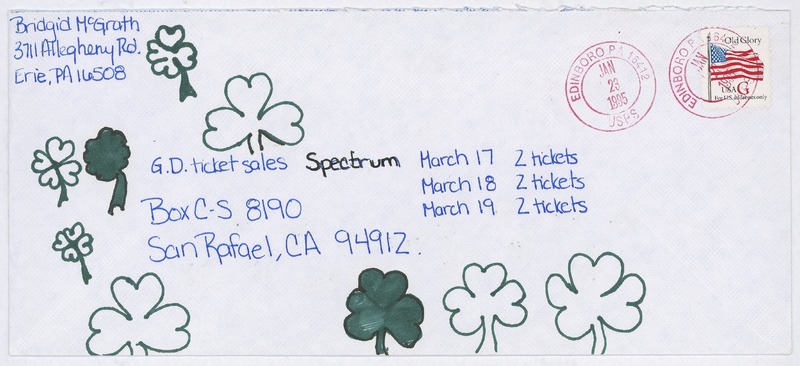 Bridgid McGrath
3711 Allegheny Rd.
Erie, PA 16508
EDINBORO PA 16412
JAN
23
1995
USPS
EDINBORO PA 164
JAN
Old Glory
USA G
For U.S. addresses only
G.D. ticket sales Spectrum March 17 2 tickets
March 18 2 tickets
March 19 2 tickets
Box C-S 8190
San Rafael, CA 94912.